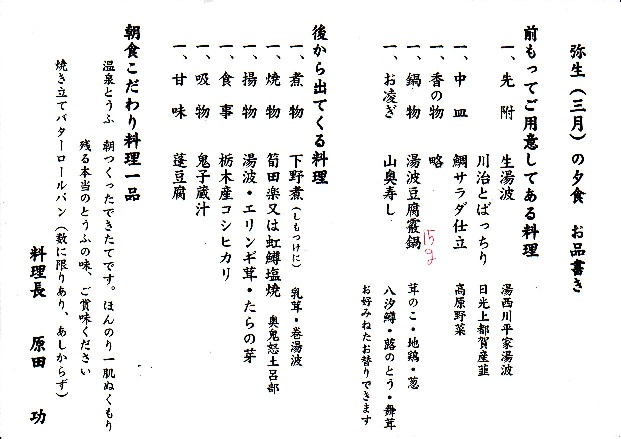 弥生(三月)の夕食 お品書き
前もってご用意してある料理
一、先附 生湯波 湯西川平家湯波
川治とばっちり 日光上都賀産韮
一、中皿 鯛サラダ仕立 高原野菜
一、香の物 略
一、鍋物 湯波豆腐霰鍋 茸のこ・地鶏・葱
15g
一、お凌ぎ 山奥寿し 八汐鱒・蕗のとう・舞茸
お好みねたお替りできます
後から出てくる料理
一、煮物 下野煮(しもつけに) 乳茸・巻湯波
一、焼物 筍田楽又は虹鱒塩焼 奥鬼怒土呂部
一、揚物 湯波・エリンギ茸・たらの芽
一、食事 栃木産コシヒカリ
一、吸物 鬼子蔵汁
一、甘味 蓬豆腐
朝食こだわり料理一品
温泉とうふ 朝つくったできたてです。ほんのり一肌ぬくもり
残る本当のとうふの味、ご賞味ください
焼き立てバターロールパン(数に限りあり、あしからず)
料理長 原田 功